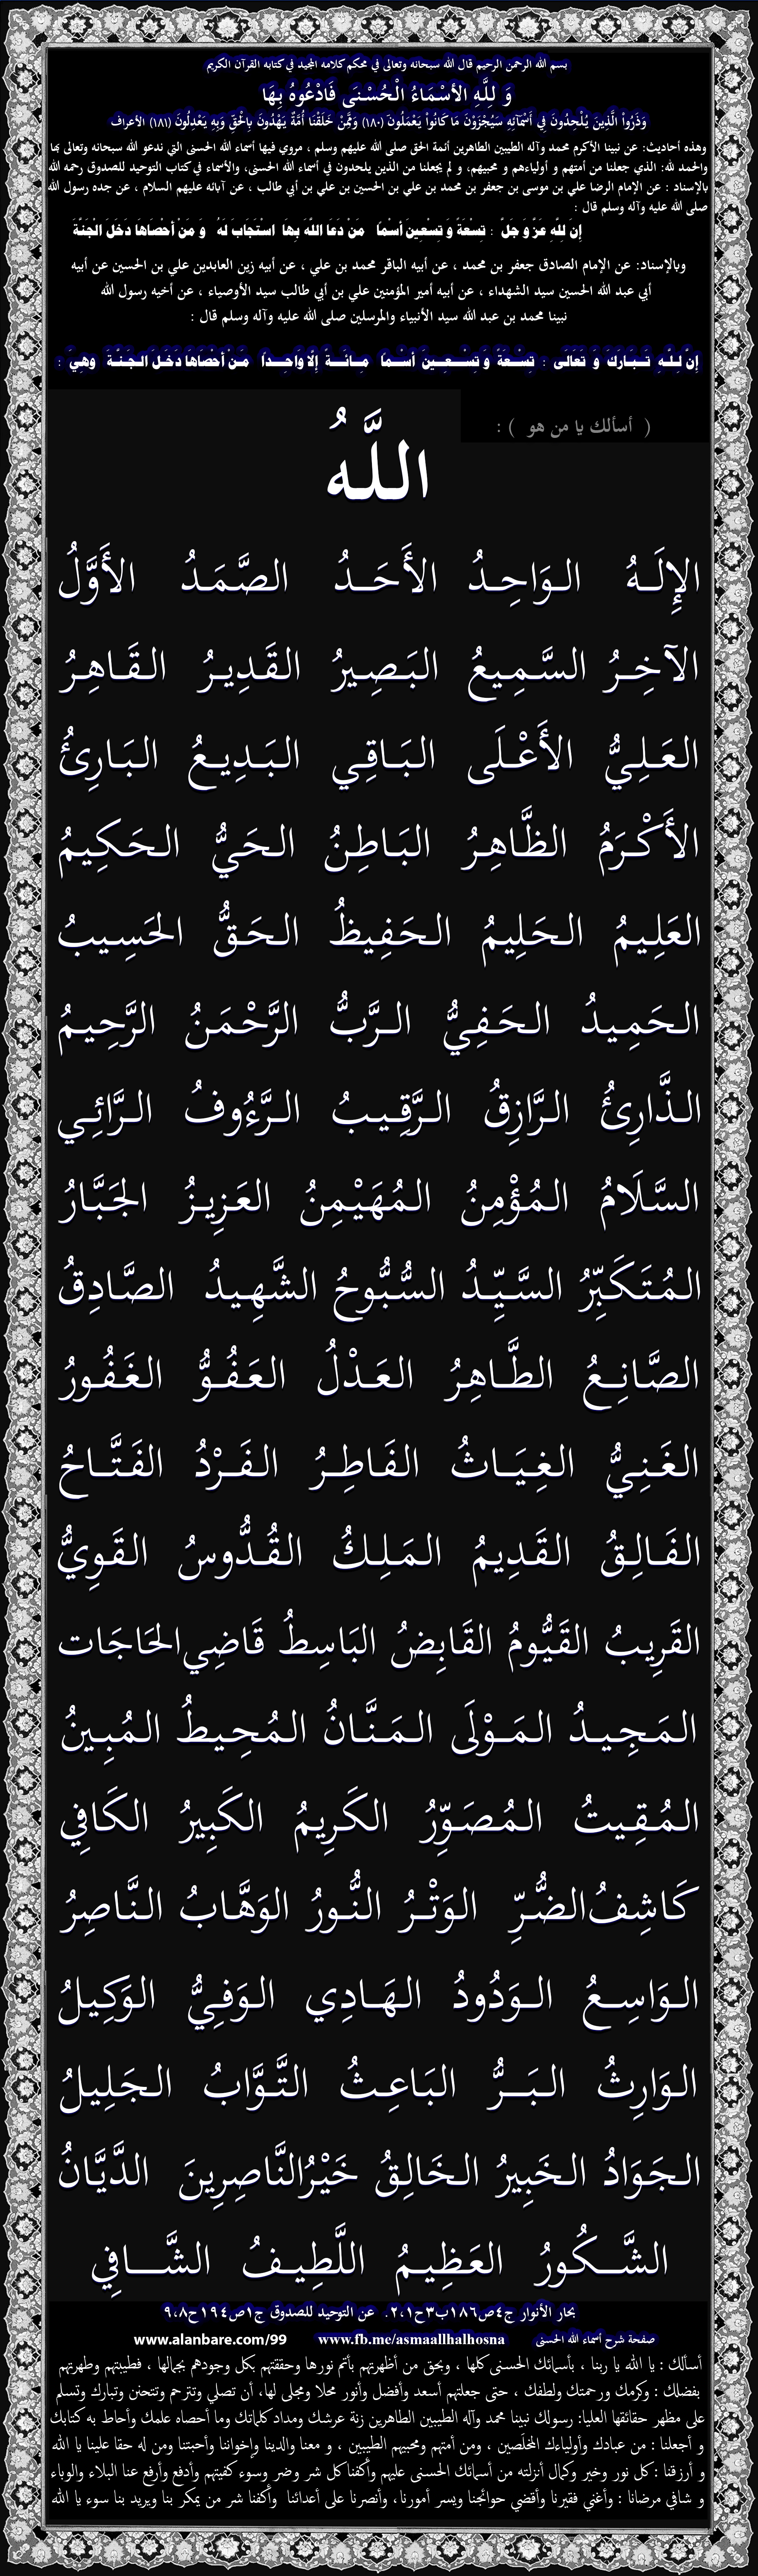 بسم الله الرحمن الرحيم قال الله سبحانه وتعالى في محكم كلامه المجيد في كتابه القرآن الكريم
وَ لِلَّهِ الأَسْمَاءُ الْحُسْنَى فَادْعُوهُ بِهَا
وَذَرُواْ الَّذِينَ يُلْحِدُونَ فِي أَسْمَآئِهِ سَيُجْزَوْنَ مَا كَانُواْ يَعْمَلُونَ (١٨٠) وَمِمَّنْ خَلَقْنَا أُمَّةٌ يَهْدُونَ بِالْحَقِّ وَبِهِ يَعْدِلُونَ (١٨١) الأعراف
وهذه أحاديث: عن نبينا الأكرم محمد وآله الطيبين الطاهرين أئمة الحق صلى الله عليهم وسلم ، مروي فيها أسماء الله الحسنى التي ندعو الله سبحانه وتعالى بها
والحمد لله: الذي جعلنا من أمتهم و أولياءهم و محبيهم، و لم يجعلنا من الذين يلحدون في أسماء الله الحسنى، والأسماء في كتاب التوحيد للصدوق رحمه الله
بالإسناد : عن الإمام الرضا علي بن موسى بن جعفر بن محمد بن علي بن الحسين بن علي بن أبي طالب ، عن آبائه عليهم السلام ، عن جده رسول الله
صلى الله عليه وآله وسلم قال :
إِن لِلَّهِ عَزَّ وَ جَلَّ : تِسْعَةً وَ تِسعِينَ أسْمًا مَنْ دَعَا اللَّهَ بِهَا استَجابَ لَهُ وَ مَنْ أحْصَاها دَخَلَ الْجَنَّةَ
وبالإسناد: عن الإمام الصادق جعفر بن محمد ، عن أبيه الباقر محمد بن علي ، عن أبيه زين العابدين علي بن الحسين عن أبيه
أبي عبد الله الحسين سيد الشهداء ، عن أبيه أمير المؤمنين علي بن أبي طالب سيد الأوصياء ، عن أخيه رسول الله
نبينا محمد بن عبد الله سيد الأنبياء والمرسلين صلى الله عليه وآله وسلم قال :
إنَّ لِلَّهِ تَبَارَكَ وَ تَعَالَى : تِسْعَةً وَ تِسْعِينَ أسْمًا مِائَةً إِلَّا وَاحِدًا مَنْ أحْصَاهَا دَخَلَ الجَنَّةَ وَهِيَ :
( أسألك يا من هو ) :
اللَّهُ
الإِلَهُ الوَاحِدُ الأَحَدُ الصَّمَدُ الأَوَّلُ
الآخِرُ السَّمِيعُ البَصِيرُ القَدِيرُ القَاهِرُ
العَلِيُّ الأَعْلَى البَاقِي البَدِيعُ البَارِئُ
الأَكْرَمُ الظَّاهِرُ البَاطِنُ الحَيُّ الحَكِيمُ
العَلِيمُ الحَلِيمُ الحَفِيظُ الحَقُّ الحَسِيبُ
الحَمِيدُ الحَفِيُّ الرَّبُّ الرَّحْمَنُ الرَّحِيمُ
الذَّارِئُ الرَّازِقُ الرَّقِيبُ الرَّءُوفُ الرَّائِي
السَّلَامُ المُؤْمِنُ المُهَيْمِنُ العَزِيزُ الجَبَّارُ
المُتَكَبِّرُ السَّيِّدُ السُّبُّوحُ الشَّهِيدُ الصَّادِقُ
الصَّانِعُ الطَّاهِرُ العَدْلُ العَفُوُّ الغَفُورُ
الغَنِيُّ الغِيَاثُ الفَاطِرُ الفَرْدُ الفَتَّاحُ
الفَالِقُ القَدِيمُ المَلِكُ القُدُّوسُ القَوِيُّ
القَرِيبُ القَيُّومُ القَابِضُ البَاسِطُ قَاضِي الحَاجَات
المَجِيدُ المَوْلَى المَنَّانُ المُحِيطُ المُبِينُ
المُقِيتُ المُصَوِّرُ الكَرِيمُ الكَبِيرُ الكَافِي
كَاشِفُ الضُّرِّ الوَتْرُ النُّورُ الوَهَّابُ النَّاصِرُ
الوَاسِعُ الوَدُودُ الهَادِي الوَفِيُّ الوَكِيلُ
الوَارِثُ البَرُّ البَاعِثُ التَّوَّابُ الجَلِيلُ
الجَوَادُ الخَبِيرُ الخَالِقُ خَيْرُ النَّاصِرِينَ الدَّيَّانُ
الشَّكُورُ العَظِيمُ اللَّطِيفُ الشَّافِي
بحار الأنوار ج٤ص١٨٦ب٣ح١،٢. عن التوحيد للصدوق ج١ص١٩٤ح٨،٩
صفحة شرح أسماء الله الحسنى www.fb.me/asmaallhalhosna www.alanbare.com/99
أسألك : يا الله يا ربنا ، بأسمائك الحسنى كلها ، وبحق من أظهرتهم بأتم نورها وحققتهم بكل وجودهم بجمالها ، فطيبتهم وطهرتهم
بفضلك : وكرمك ورحمتك ولطفك ، حتى جعلتهم أسعد وأفضل وأنور محلا ومجلى لها، أن تصلي وتترحم وتتحنن وتبارك وتسلم
على مظهر حقائقها العليا: رسولك نبينا محمد وآله الطيبين الطاهرين زنة عرشك ومداد كلماتك وما أحصاه علمك وأحاط به كتابك
و أجعلنا : من عبادك وأولياءك المخلَصين ، ومن أمتهم ومحبيهم الطيبين ، و معنا والدينا وإخواننا وأحبتنا ومن له حقا علينا يا الله
و أرزقنا : كل نور وخير وكمال أنزلته من أسمائك الحسنى عليهم وأكفنا كل شر وضر وسوء كفيتهم وأدفع وأرفع عنا البلاء والوباء
و شافي مرضانا : وأغني فقيرنا وأقضي حوائجنا ويسر أمورنا، وأنصرنا على أعدائنا وأكفنا شر من يمكر بنا ويريد بنا سوء يا الله